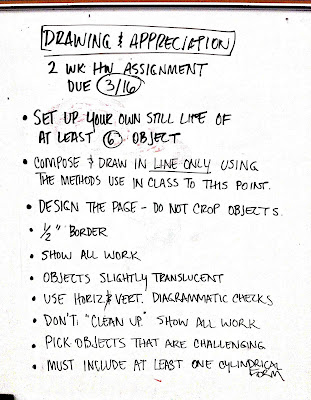 DRAWING & APPRECIATION
2 WK HW ASSIGNMENT
DUE 3/16
• SET UP YOUR OWN STILL LIFE OF
AT LEAST 6 OBJECT
• COMPOSE & DRAW IN LINE ONLY USING
THE METHODS USE IN CLASS TO THIS POINT.
• DESIGN THE PAGE - DO NOT CROP OBJECTS.
• 1/2" BORDER
• SHOW ALL WORK
• OBJECTS SLIGHTLY TRANSLUCENT
• USE HORIZ & VERT. DIAGRAMMATIC CHECKS
• DON'T "CLEAN UP" SHOW ALL WORK
• PICK OBJECTS THAT ARE CHALLENGING
• MUST INCLUDE AT LEAST ONE CYLINDRICAL
FORM